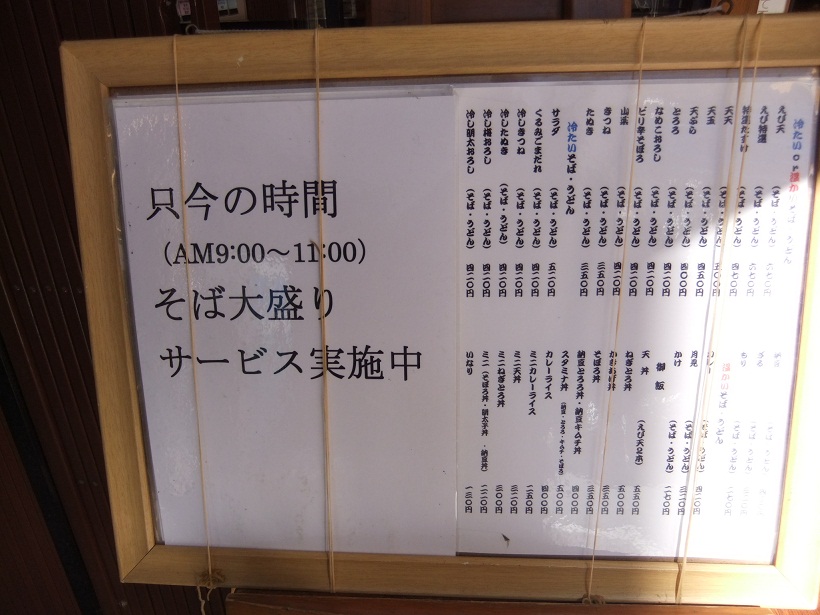 只今の時間
（AM9:00～11:00）
そば大盛り
サービス実施中
冷たいor温かいそば うどん
えび天 （そば・うどん）
えび特選 （そば・うどん） 六七〇円
特選たすけ （そば・うどん） 六七〇円
天天 （そば・うどん） 四七〇円
天玉 （そば・うどん） 五〇〇円
天ぷら （そば・うどん） 四五〇円
とろろ （そば・うどん） 四〇〇円
なめこおろし （そば・うどん） 四二〇円
ピリ辛そぼろ （そば・うどん） 四二〇円
山菜 （そば・うどん） 四二〇円
きつね （そば・うどん） 三五〇円
たぬき （そば・うどん） 三五〇円
冷たいそば・うどん
サラダ （そば・うどん） 五二〇円
くるみごまだれ （そば・うどん） 四二〇円
冷しきつね （そば・うどん） 四二〇円
冷したぬき （そば・うどん） 四二〇円
冷し梅おろし （そば・うどん） 四二〇円
冷し明太おろし （そば・うどん） 四二〇円
もり
温かいそば・うどん
カレー （そば・うどん） 四二〇円
月見 （そば・うどん） 三二〇円
かけ （そば・うどん） 二七〇円
御飯
天丼 （えび天2本） 五五〇円
ねぎとろ丼 五〇〇円
かきあげ丼 三五〇円
そぼろ丼 三五〇円
納豆とろろ丼・納豆キムチ丼 四〇〇円
スタミナ丼 （納豆・とろろ・キムチ・そぼろ） 五〇〇円
カレーライス 四〇〇円
ミニカレーライス 二五〇円
ミニ天丼 三〇〇円
ミニねぎとろ丼 三二〇円
ミニ（そぼろ丼・明太子丼・納豆丼） 二二〇円
いなり 一三〇円